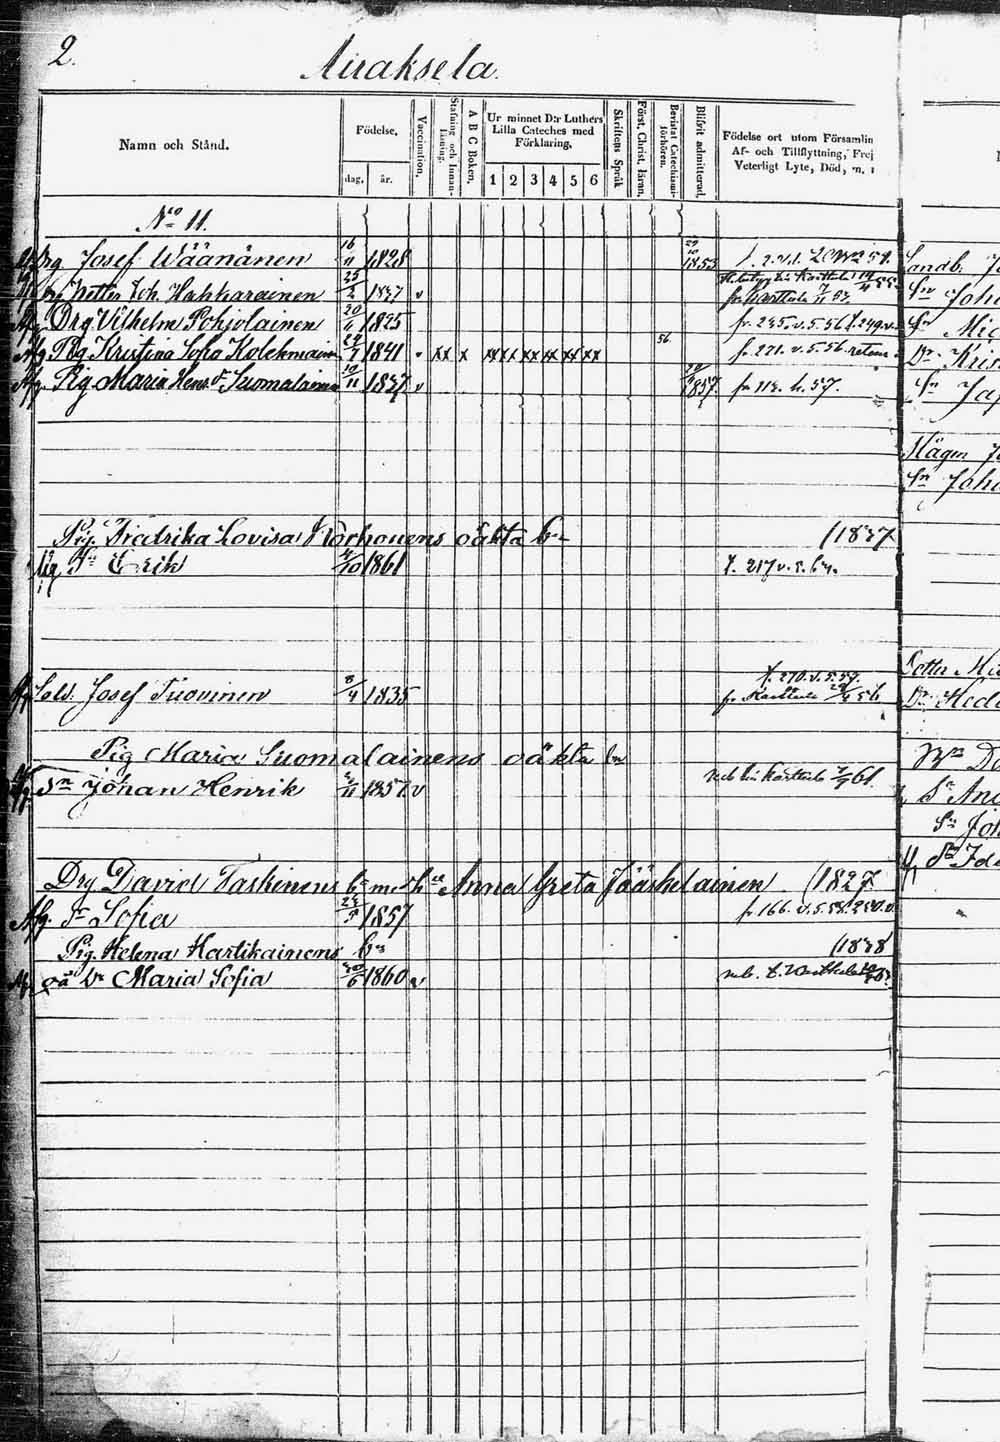 2.
Airaksela.
Namn och Stånd.
Födelse.
dag. år.
Vaccination.
Stafning och Innan-läsning.
A B C Boken.
Ur minnet D:r Luthers
Lilla Cateches med
Förklaring.
1 2 3 4 5 6
Skriftens Språk
Först. Christ. läran.
Bevistat Catechismi-förhören.
Blifvit admitterad.
Födelse ort utom Församlin
Af- och Tillflyttning, Frej
Veterligt Lyte, Död, m.
No 11.
Drg Josef Wäänänen 16/11 1828 1853
Petter Joh. Hakkarainen 25/2 1837 v
Afg Drg Vilhelm Pohjolainen 20/11 1825 fr. 235. v. 5. 56
Afg Pig Kristina Sofia Kolehmain 1841 v xx x xx xx xx xx xx xx 56. fr. 271. v. 5. 56 retour
Afg. Pig Maria Hens Dr Suomalainen 10/11 1837 v 1857 fr 113. h. 57.
Pig. Fredrika Lovisa Korhonens oäkta bn (1837
Sn Erik 4/10 1861 t. 217 v. s. 64.
Sold. Josef Tuovinen 8/4 1835 t. 270. v. s. 59.
fr. Karttula 56
Pig Maria Suomalainens oäkta bn
Sn Johan Henrik 1857 v Karttula 61.
Drg David Taskinens bn med h:u Anna Greta Jääskelainen (1827
Afg Dr Sofia 1857 fr 166. v. 5. 58
Pig. Helena Hartikainens bn (1838
oä Dr Maria Sofia 20/6 1860 v
Landb. Jo
Sn Joha
Sn Mic
Dr Kris
Sn Jaf
Sn Joha
Dr Hed
Sn And
Sn Joh
Dr Ida